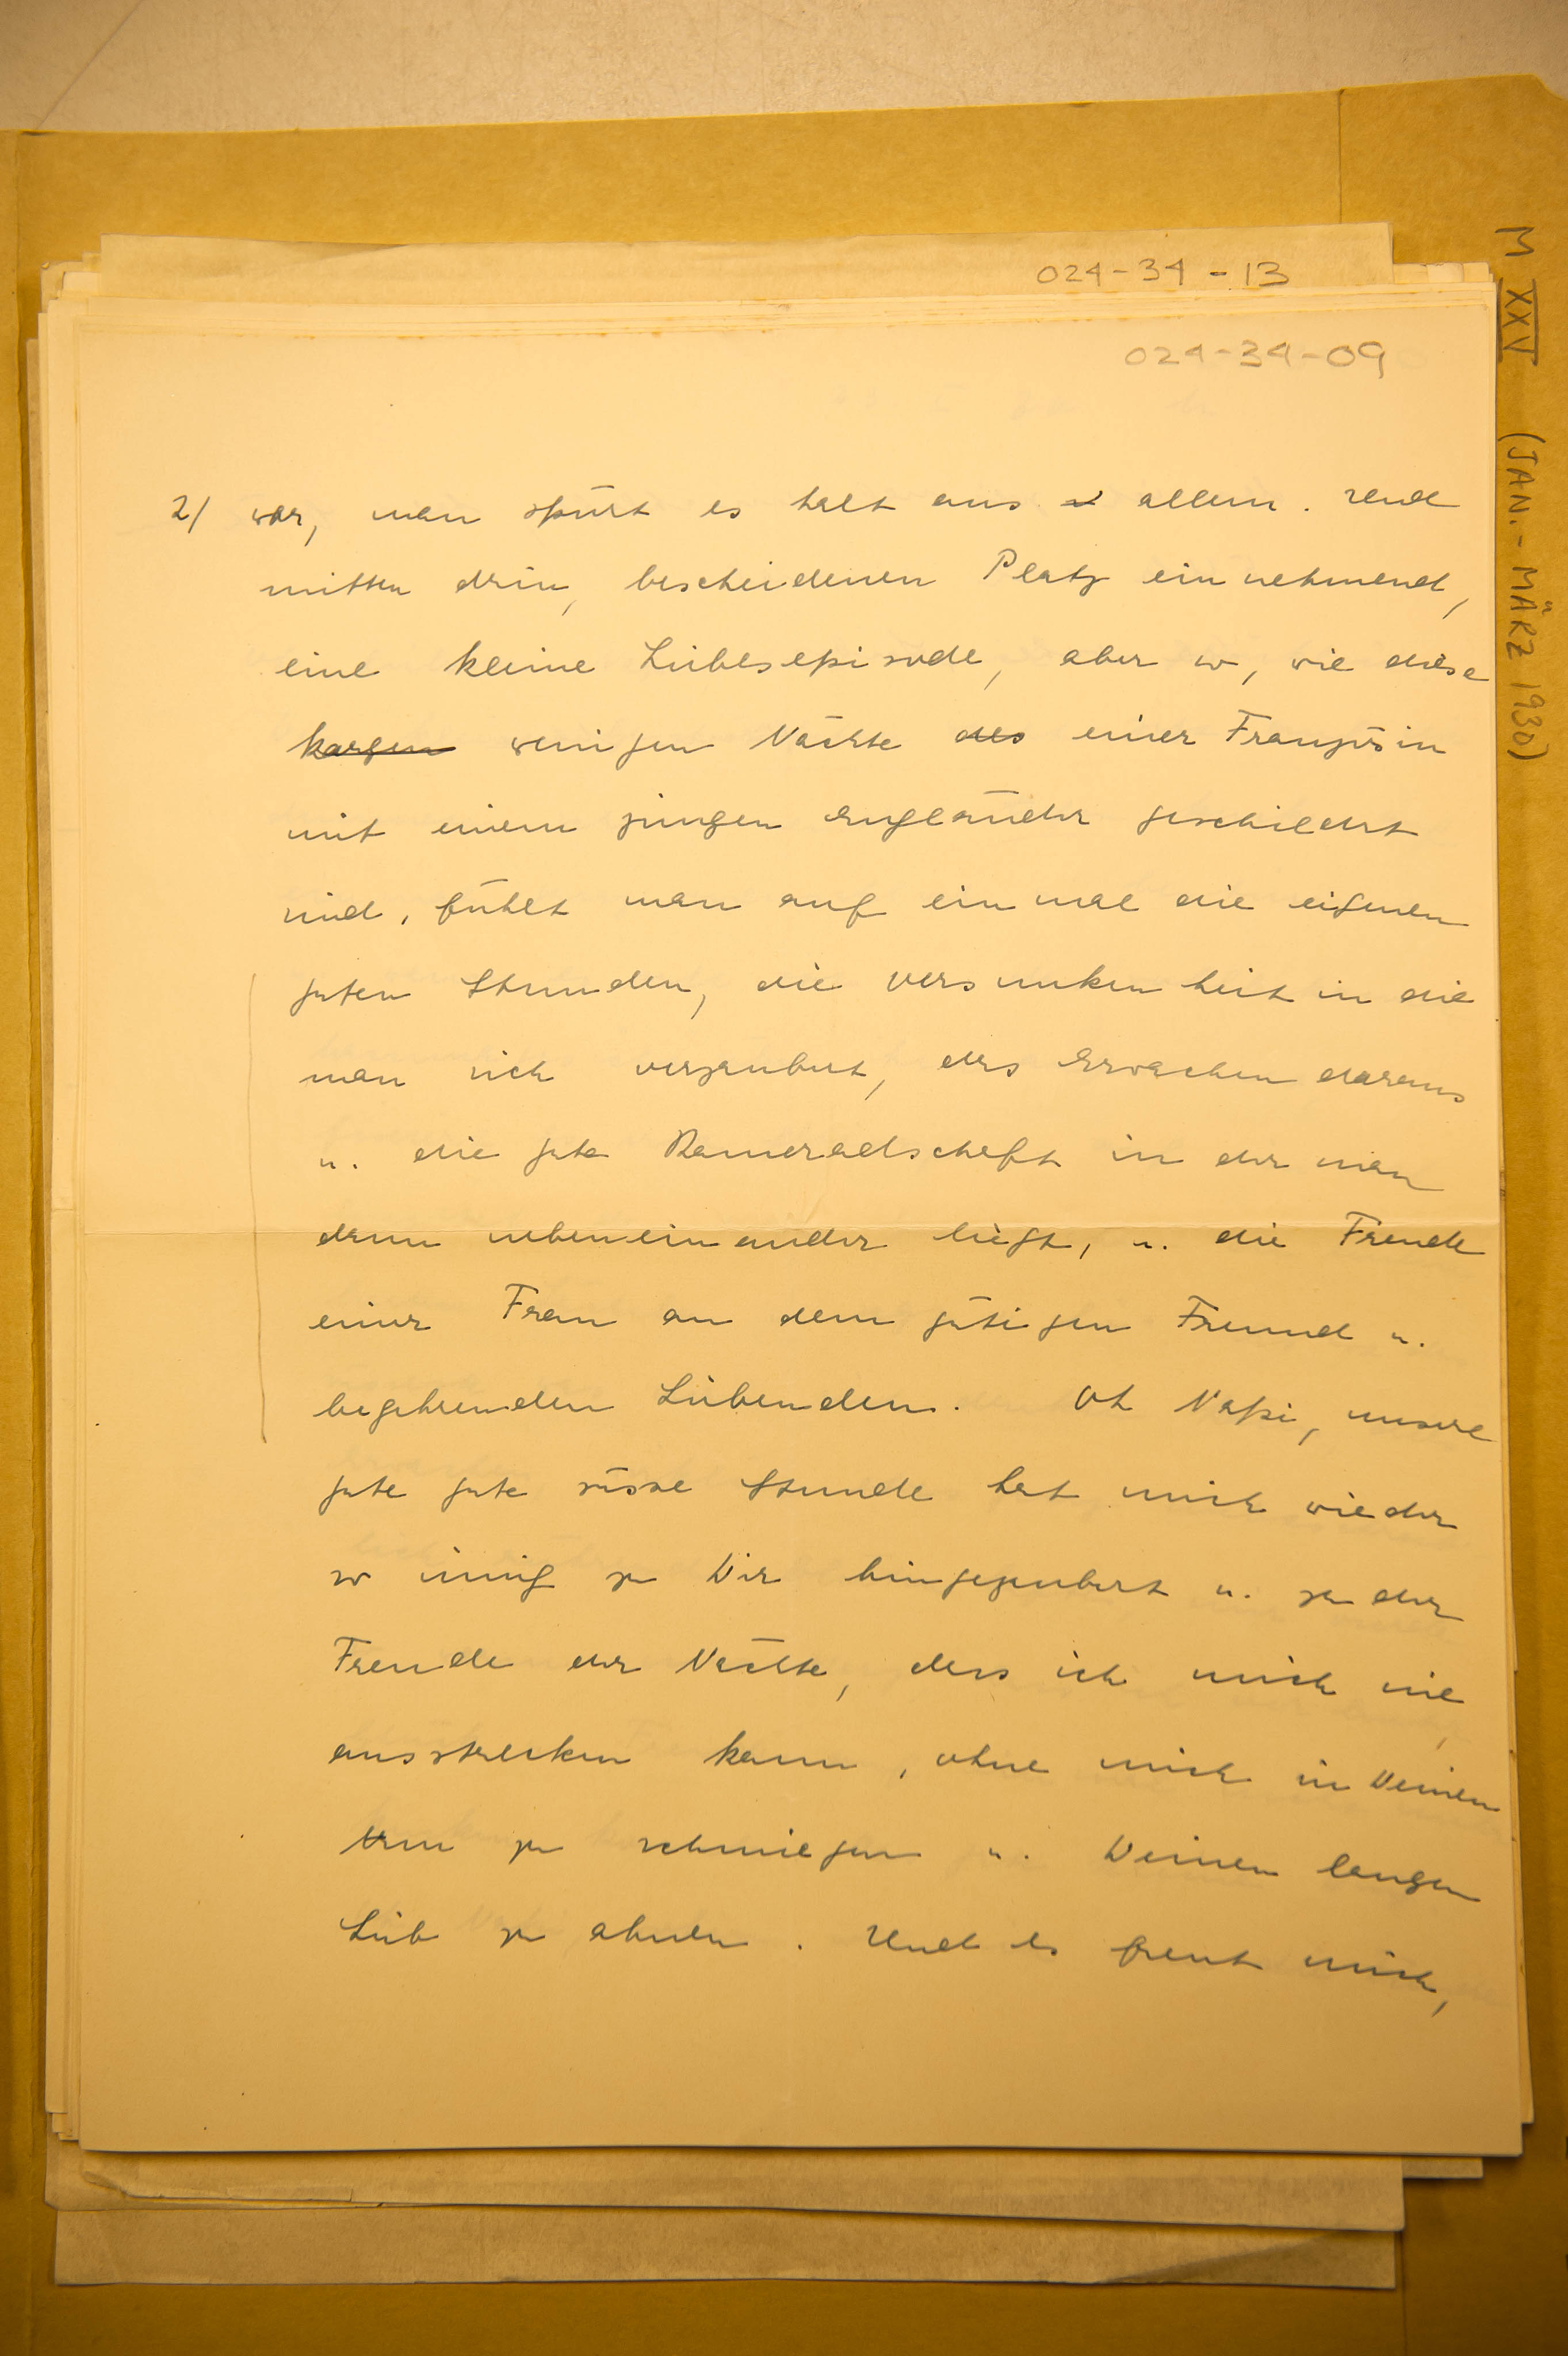 024-34-13
024-34-09
M XXV (JAN.-MÄRZ 1930)
2/ war, man spürt es halt aus allem. Und
mitten drin, bescheidenen Platz einnehmend,
eine kleine Liebesepisode, aber so, wie diese
kargen wenigen Nächte des einer Französin
mit einem jungen Engländer geschildert
sind, fühlt man auf einmal die eigenen
guten Stunden, die Versunkenheit in die
man sich verzaubert, das Erwachen daraus
u. die gute Kameradschaft in der man
dann nebeneinander liegt, u. die Freude
einer Frau an dem gütigen Freund u.
begehrenden Liebenden. Oh unsere
gute gute süsse Stunde hat mich wieder
so innig zu Dir hingezaubert u. zu der
Freude der Nächte, dass ich mich nie
ausstrecken kann, ohne mich in Deinen
Arm zu schmiegen u. Deinen langen
Leib zu ahnen. Und es freut mich,